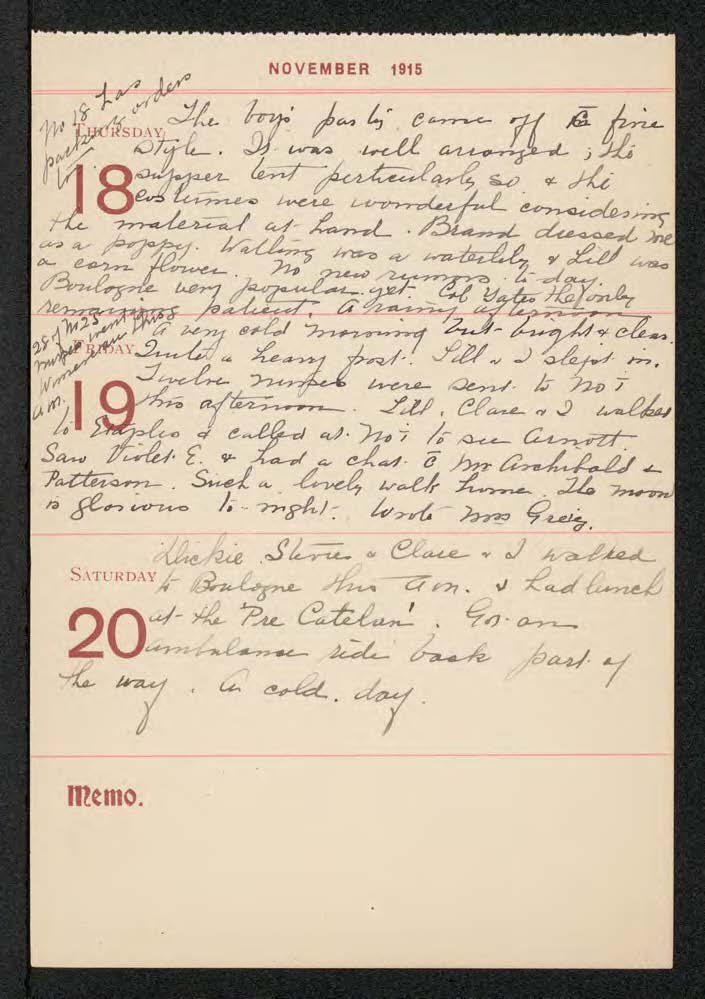 NOVEMBER 1915
No 18 has
packing orders
too
THURSDAY
18
The boys party came off c̄ fine
style. It was well arranged; the
supper tent perticularly so & the
costumes were wonderful considering
the material at hand. Brand dressed me
as a poppy. Walling was a waterlily & Lill was
a corn flower. No new rumors to-day.
Boulogne very popular yet. Col Yates the only
remaining patient. A rainy afternoon
28 of No 25
nurses went
this
a.m.
FRIDAY
19
A very cold morning but bright & clear.
Quite a heavy frost. Lill & I slept in.
Twelve nurses were sent to No 1
this afternoon. Lill, Clare & I walked
to Etaples & called at No 1 to see Arnott.
Saw Violet E. & had a chat c̄ Mr Archibald &
Patterson. Such a lovely walk home. The moon
is glorious to-night. Wrote Mrs Greig.
SATURDAY
20
Dickie Stevies & Clare & I walked
to Boulogne this a.m. & had lunch
at the 'Pre Catelan'. Got an
ambulance ride back part of
the way. A cold day.
Memo.